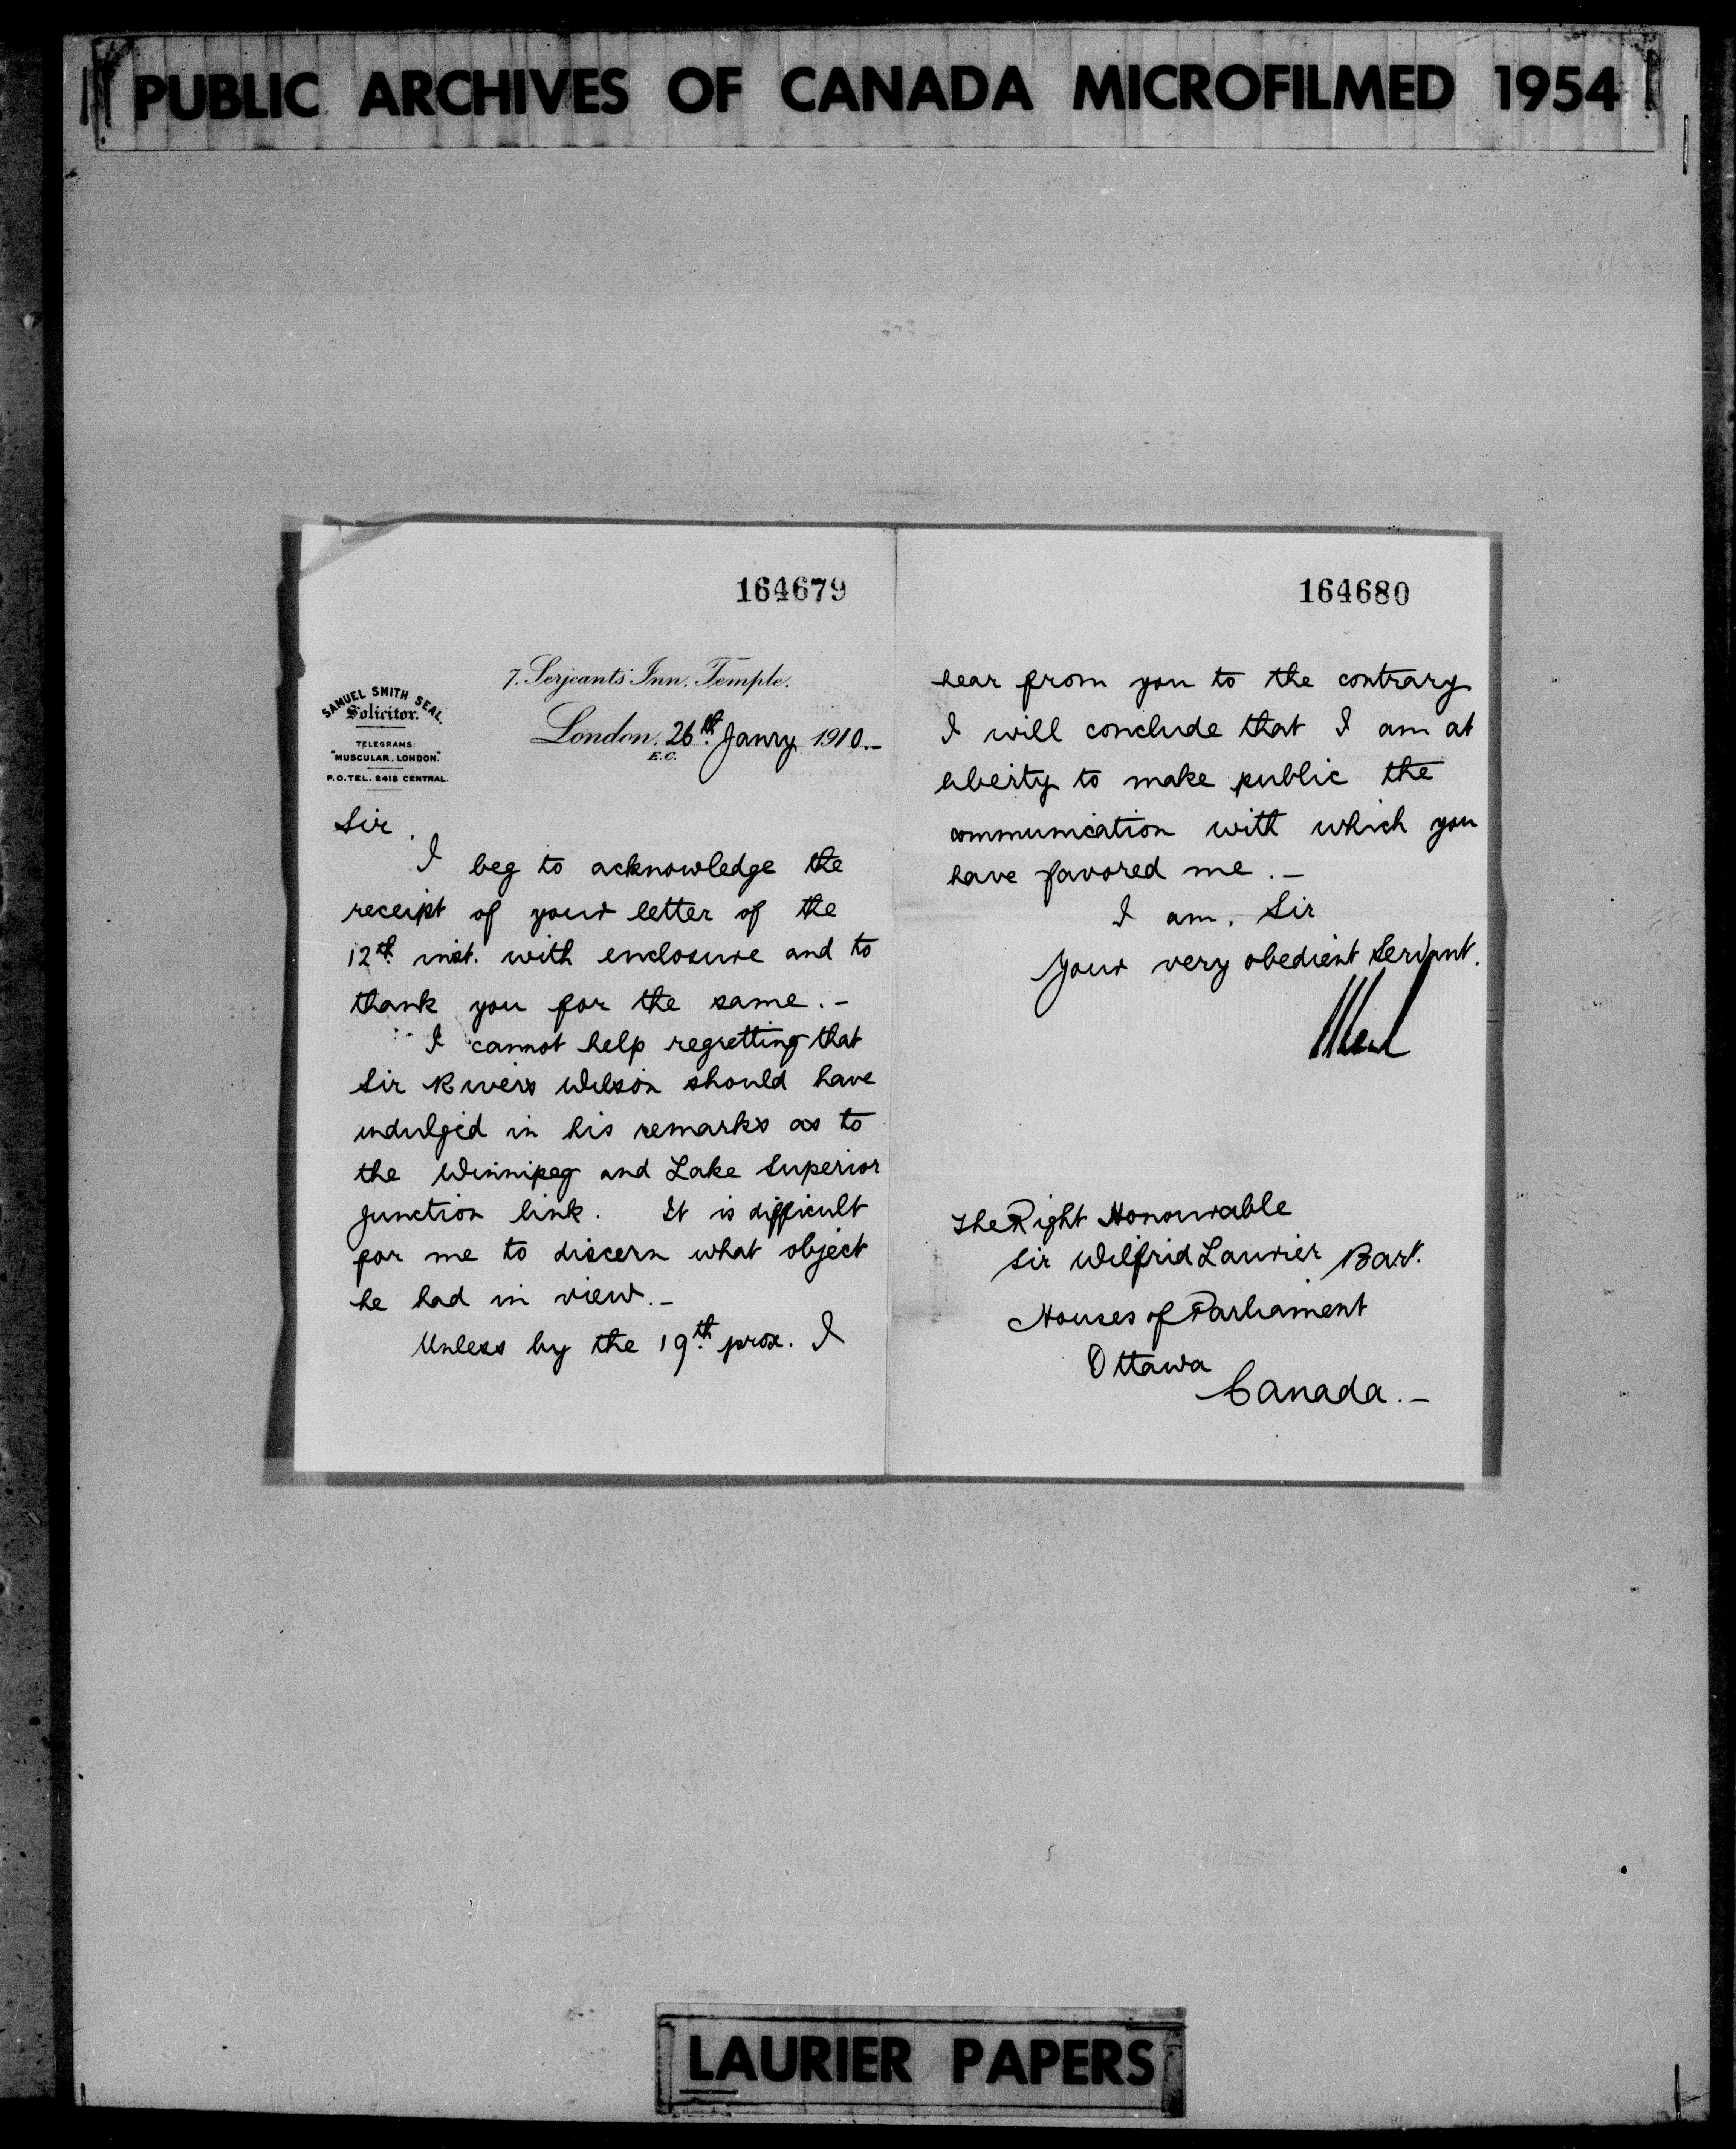 PUBLIC ARCHIVES OF CANADA MICROFILMED 1954
164679
SAMUEL SMITH SEAL,
Solicitor.
TELEGRAMS:
"MUSCULAR, LONDON."
P.O. TEL. 2418 CENTRAL.
7. Serjeants' Inn. Temple.
London. 26th. Janry 1910.-
E.C.
Sir,
I beg to acknowledge the
receipt of your letter of the
12th. inst. with enclosure and to
thank you for the same.-
I cannot help regretting that
Sir Rivers Wilson should have
indulged in his remarks as to
the Winnipeg and Lake Superior
junction link. It is difficult
for me to discern what object
he had in view.-
Unless by the 19th. prox. I
164680
hear from you to the contrary
I will conclude that I am at
liberty to make public the
communication with which you
have favored me.-
I am, Sir
Your very obedient Servant.
The Right Honourable
Sir Wilfrid Laurier Bart.
Houses of Parliament
Ottawa
Canada.-
LAURIER PAPERS